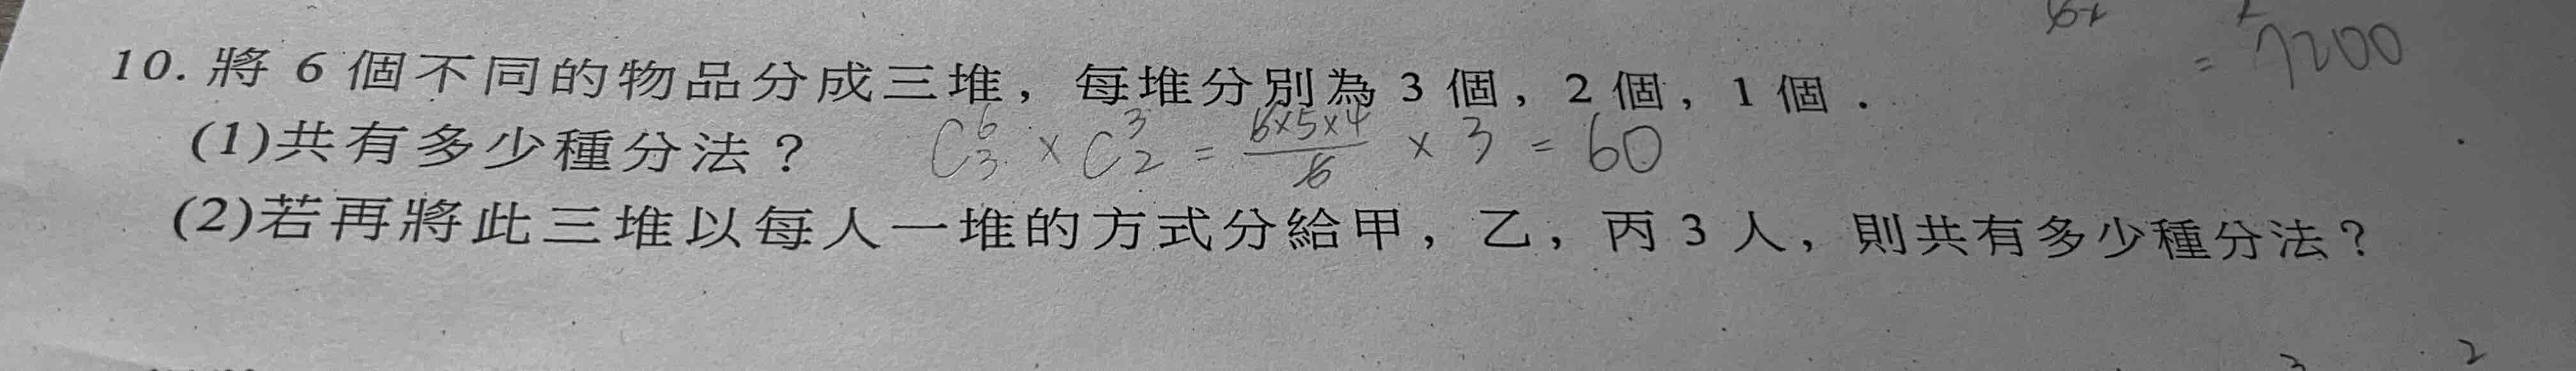 = 7200
10. 將 6 個不同的物品分成三堆，每堆分別為 3 個，2 個，1 個．
(1)共有多少種分法？ C⁶₃ × C³₂ = 6×5×4/6 × 3 = 60
(2)若再將此三堆以每人一堆的方式分給甲，乙，丙 3 人，則共有多少種分法？
2